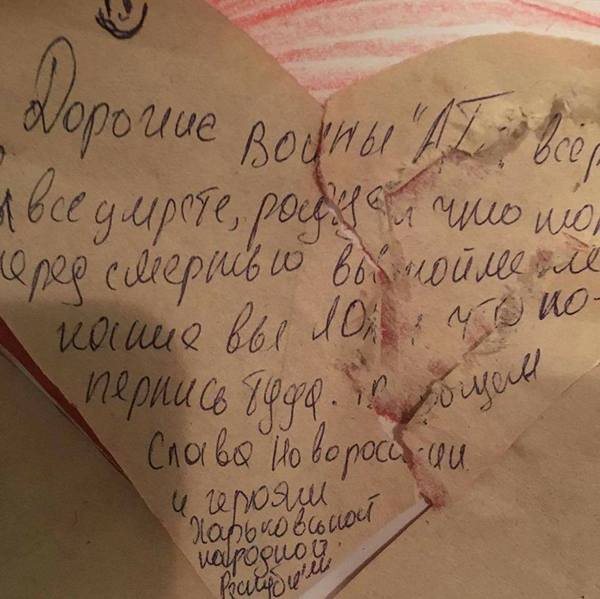 Дорогие воины "АТ
все умрете, что
перед смертью вы
какие вы что по-
перлись туда.
Слава Новороссии
и героям
Харьковской
народной
Республики